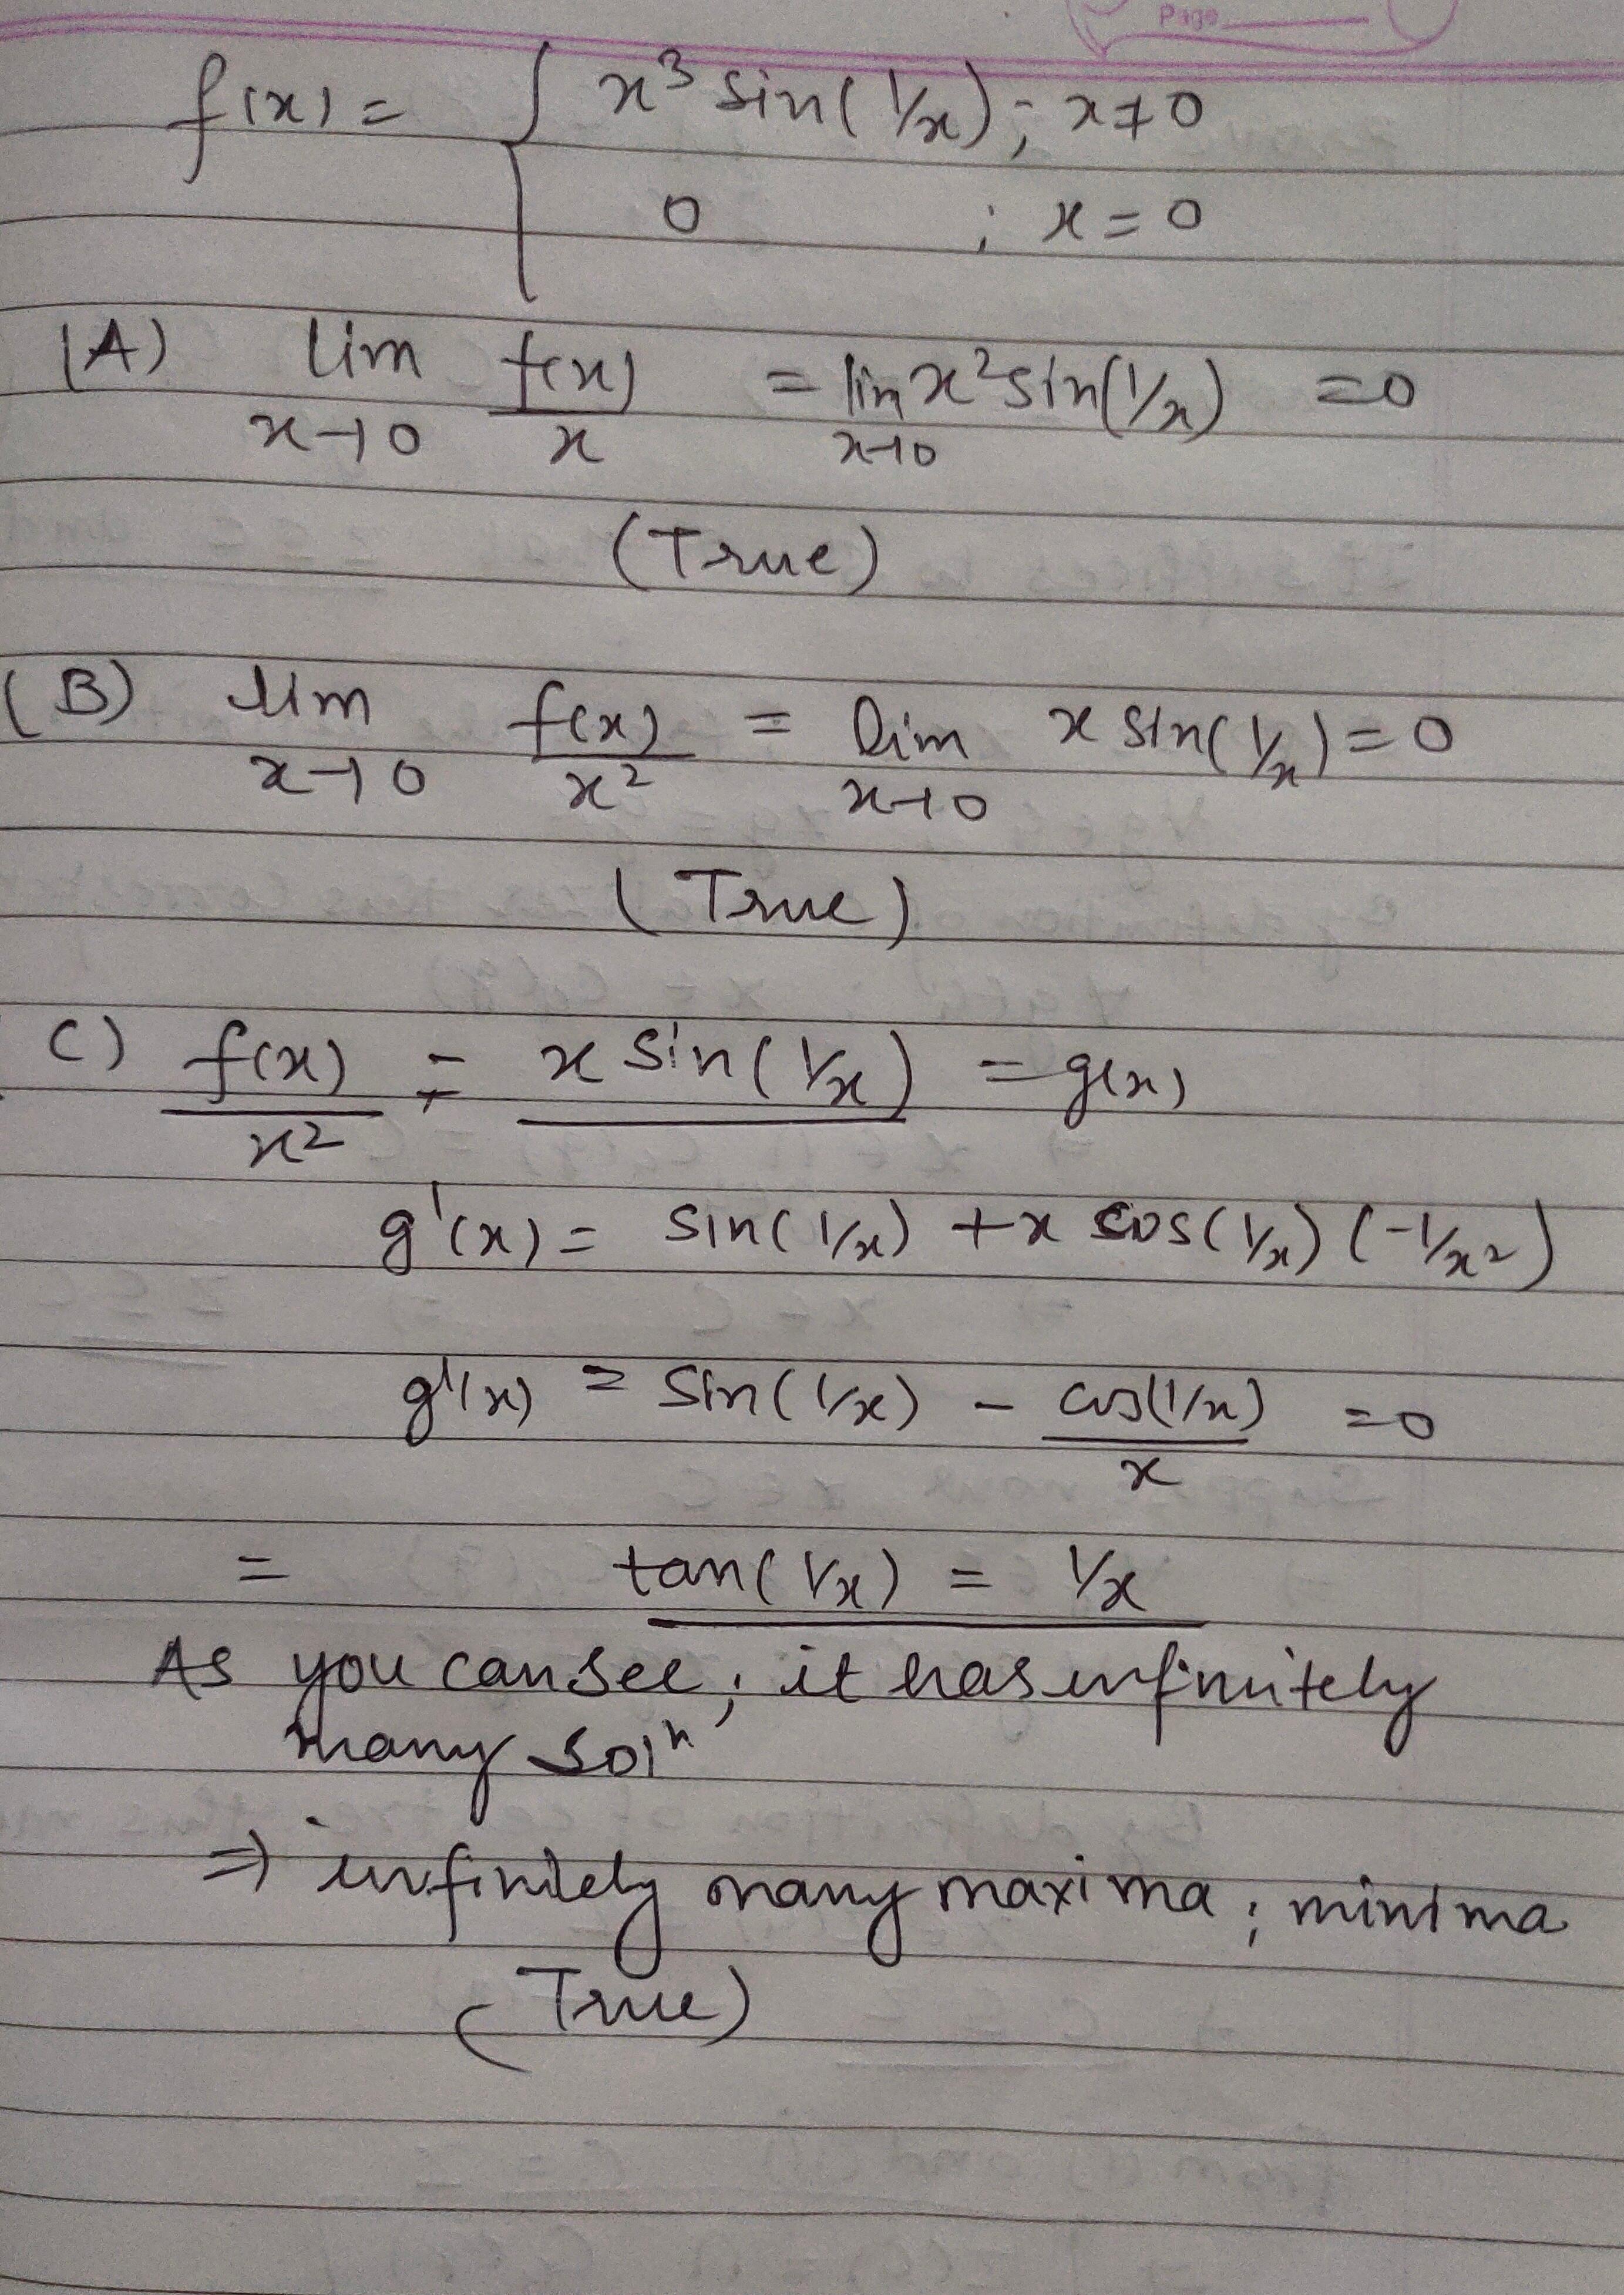 Page
f(x) = { x³ sin(1/x) ; x≠0
0 ; x=0
(A) lim x→0 f(x)/x = lim x→0 x² sin(1/x) =0
(True)
(B) lim x→0 f(x)/x² = lim x→0 x sin(1/x) = 0
(True)
C) f(x)/x² = x sin(1/x) = g(x)
g'(x) = sin(1/x) + x cos(1/x) (-1/x²)
g'(x) = sin(1/x) - cos(1/x)/x =0
= tan(1/x) = 1/x
As you can see; it has infinitely
many solⁿ
⇒ infinitely many maxima; minima
(True)